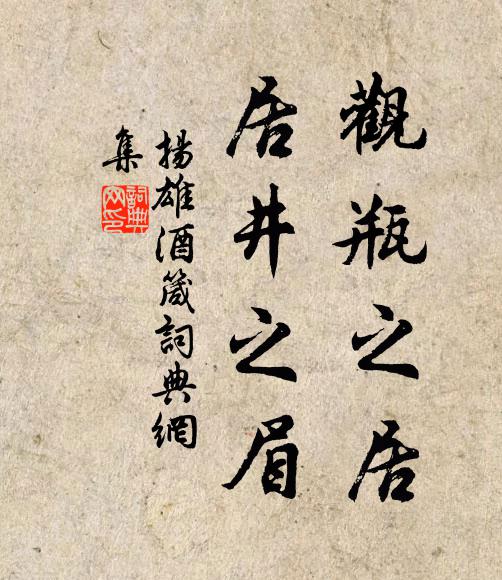 觀瓶之居
居井之眉
揚雄酒箴詞典網
集
詞典
网印